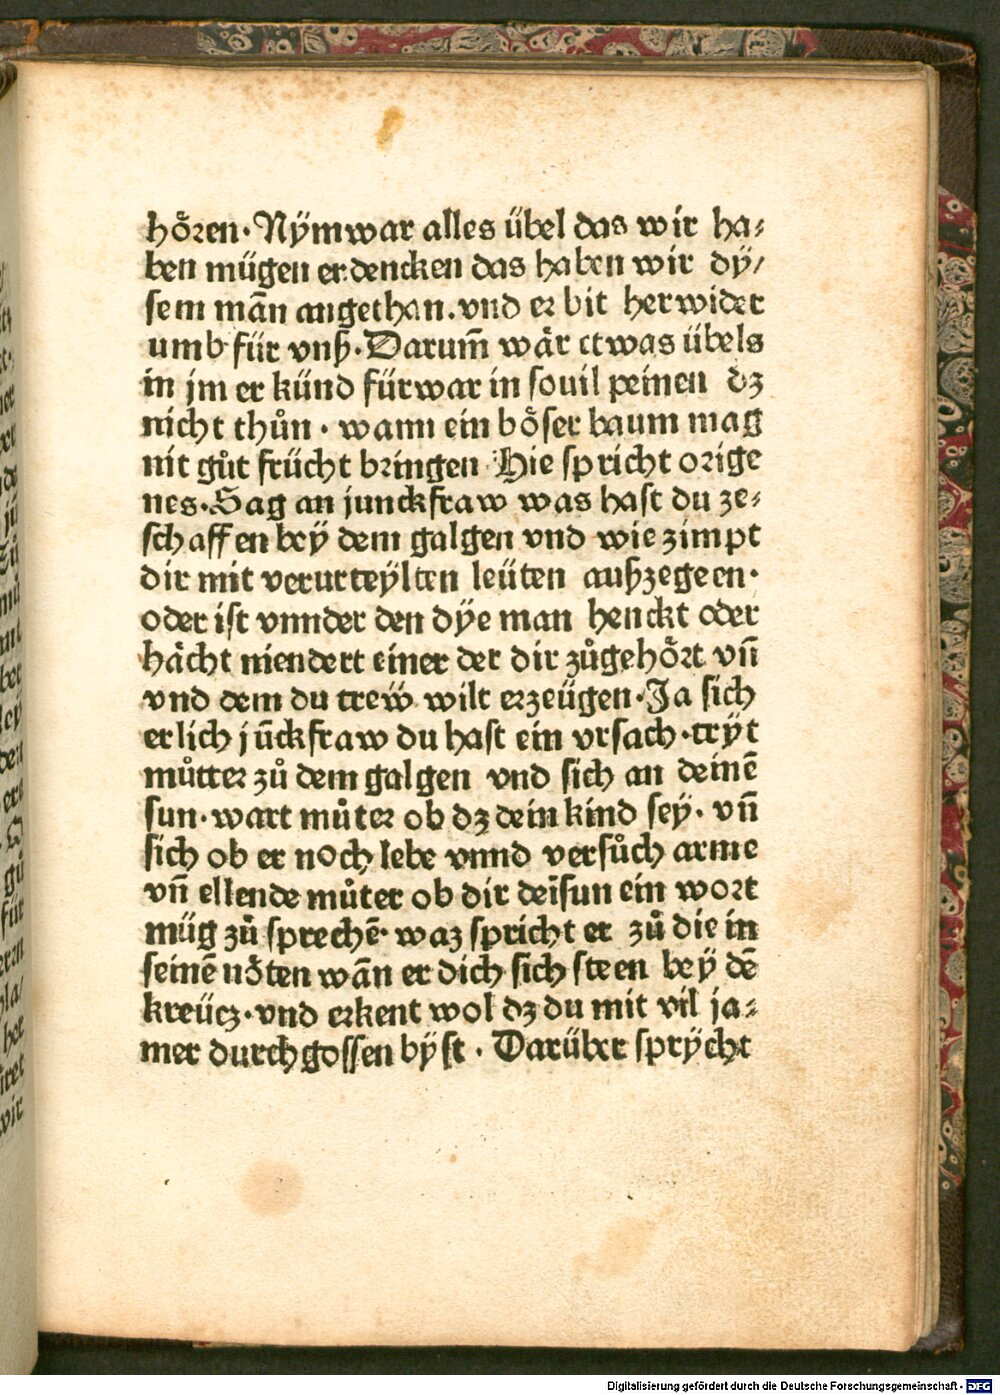 hoͤren·Nÿmwar alles übel das wir ha⸗
ben mügen erdencken das haben wir dÿ/
sem mān angethan.vnd er bit herwider
umb für vnß·Darum̄ wår etwas übels
in jm er künd fürwar in souil peinen dz
nicht thůn·wann ein boͤser baum mag
nit gůt frücht bringen·Hie spricht orige
nes·Sag an junckfraw was hast du ze⸗
schaffen beÿ dem galgen vnd wie zimpt
dir mit verurteÿlten leüten außzegeen·
oder ist vnnder den dÿe man henckt oder
hächt niendert einer der dir zůgehoͤrt vn̄
vnd dem du treẅ wilt erzeügen·Ja sich
erlich jūckfraw du hast ein vrsach·trÿt
můtter zů dem galgen vnd sich an deinē
sun·wart můter ob dz dein kind seÿ·vn̄
sich ob er noch lebe vnnd versůch arme
vn̄ ellende můter ob dir deīsun ein wort
müg zů sprechē·waz spricht er zů die in
seinē noͤten wān er dich sich steen beÿ dē
kreücz·vnd erkent wol dz du mit vil ja⸗
mer durchgossen bÿst·Darüber sprÿcht
Digitalisierung gefördert durch die Deutsche Forschungsgemeinschaft - DFG